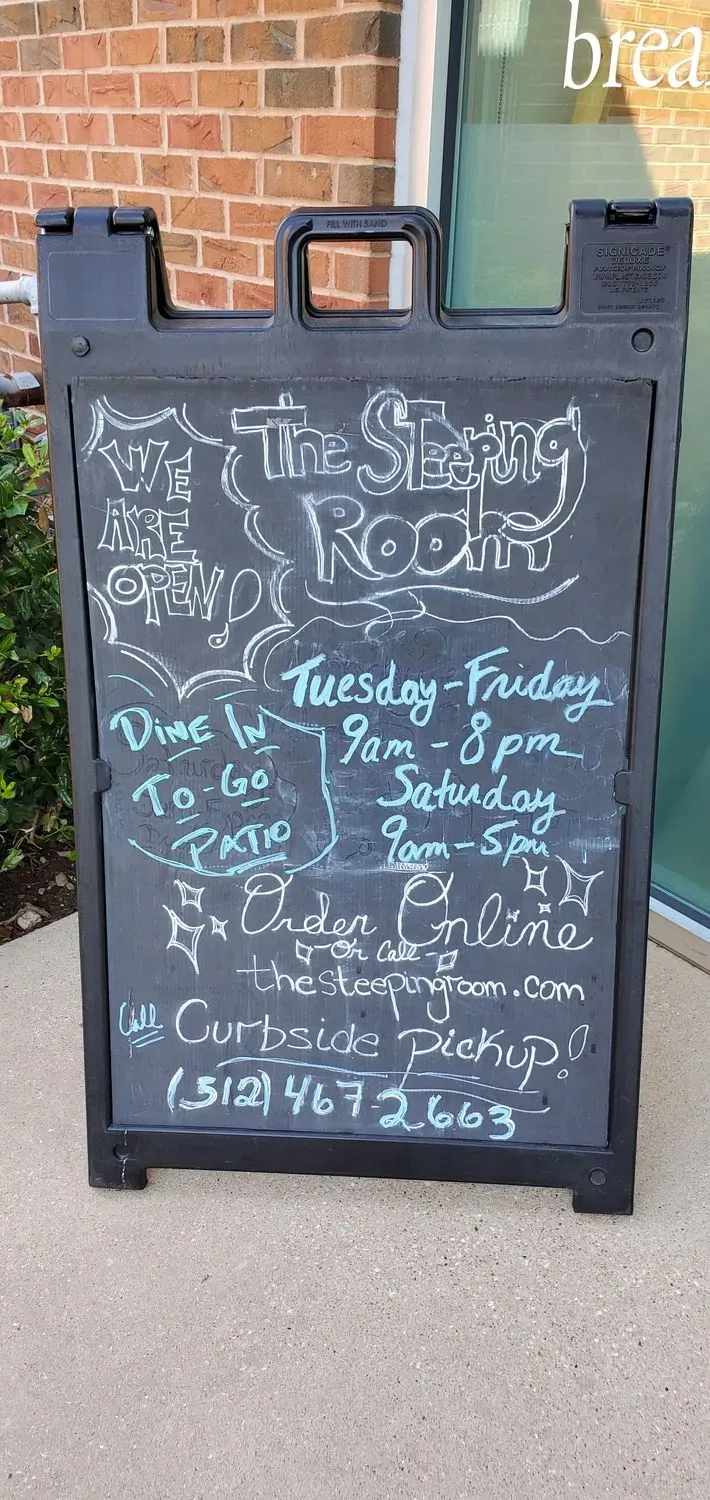 brea
FILL WITH SAND
SIGNICADE®
DELUXE
WE
ARE
OPEN!
The Steeping
Room
Tuesday-Friday
9am - 8pm
Saturday
9am-5pm
DINE IN
TO-GO
PATIO
Order Online
Or Call
thesteepingroom.com
Call Curbside pickup!
(512) 467-2663